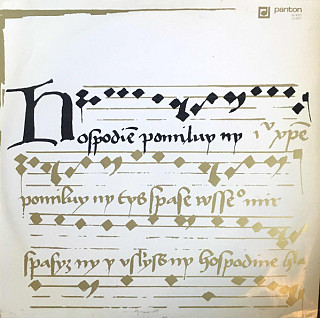 panton
Hospodiē pomiluy ny
pomiluy ny tys spase wsseᵒ mir
spasyz ny y uslyss ny hospodine